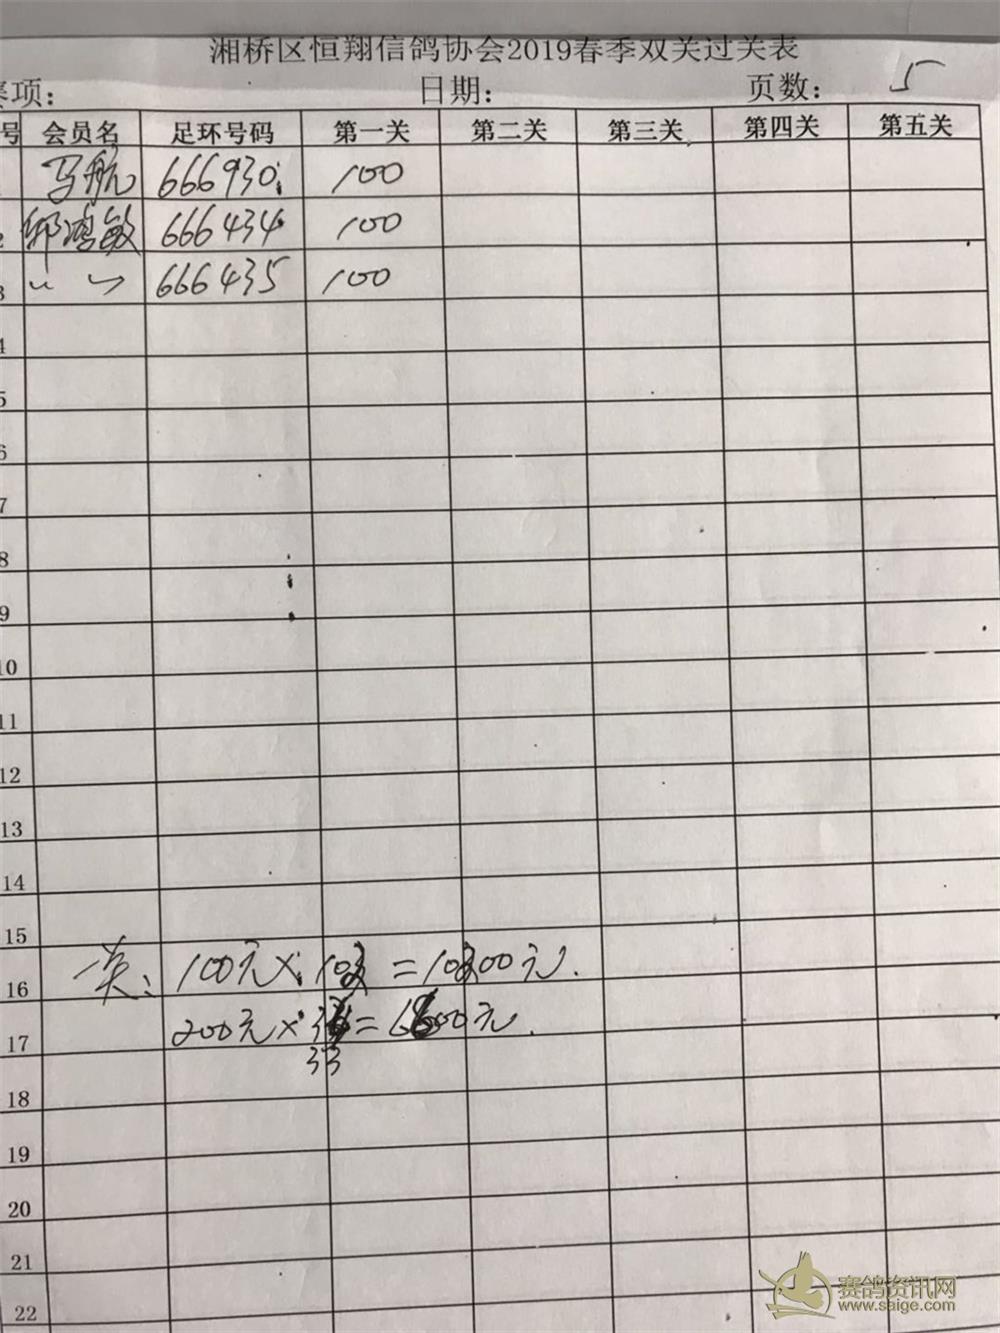 湘桥区恒翔信鸽协会2019春季双关过关表
赛项： 日期： 页数： 5
号 会员名 足环号码 第一关 第二关 第三关 第四关 第五关
马航 666930 100
2 郑鸿敏 666434 100
3 〃 〃 666435 100
4
5
6
7
8
9
10
11
12
13
14
15
16 一关：100元×10 =10 00元.
17 200元× = 00元.
33
18
19
20
21
22
赛鸽资讯网
www.saige.com